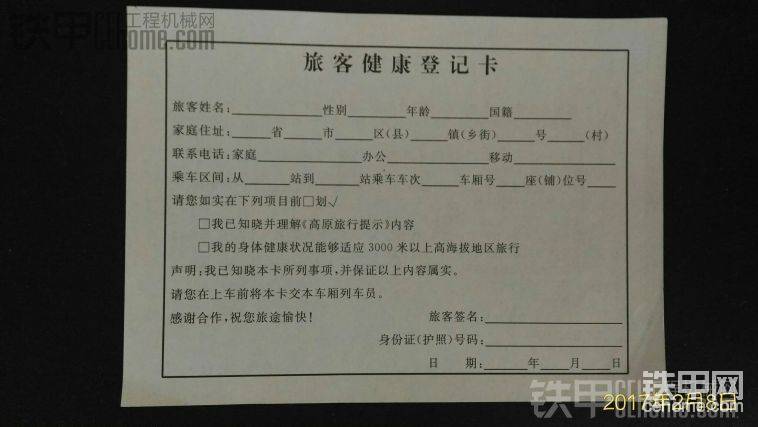 铁甲工程机械网
cehome.com
旅客健康登记卡
旅客姓名:________性别________年龄________国籍________
家庭住址:____省____市____区(县)____镇(乡街)____号____(村)
联系电话:家庭________办公________移动________
乘车区间:从____站到____站乘车车次____车厢号____座(铺)位号____
请您如实在下列项目前□划√
□我已知晓并理解《高原旅行提示》内容
□我的身体健康状况能够适应3000米以上高海拔地区旅行
声明:我已知晓本卡所列事项,并保证以上内容属实。
请您在上车前将本卡交本车厢列车员。
感谢合作,祝您旅途愉快!
旅客签名:________
身份证(护照)号码:________
日 期:____年____月____日
铁甲网
cehome.com
2017年2月8日